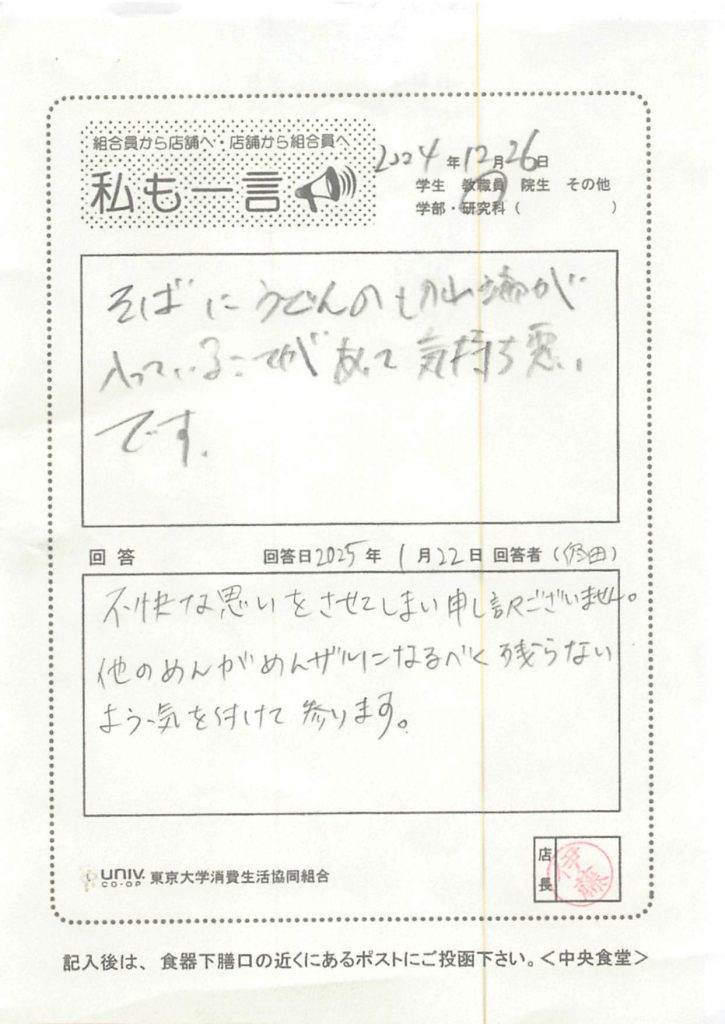 組合員から店舗へ・店舗から組合員へ
私も一言
2024年12月26日
学生 教職員 院生 その他
学部・研究科（　　　　　）
そばにうどんの切れ端が
入っていることがあって気持ち悪い
です。
回答 回答日2025年1月22日 回答者（　田）
不快な思いをさせてしまい申し訳ございません。
他のめんがめんザルになるべく残らない
よう気を付けて参ります。
UNIV. CO-OP 東京大学消費生活協同組合
店長 伊藤
記入後は、食器下膳口の近くにあるポストにご投函下さい。＜中央食堂＞